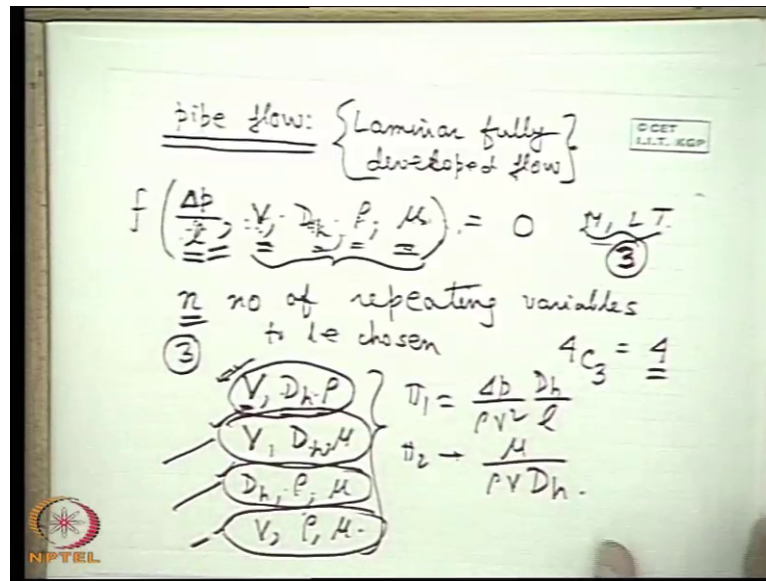 pipe flow: {Laminar fully
developed flow}
C CET
I.I.T. KGP
f (Δp/l, V, Dh, ρ, μ) = 0 M, L T.
③
n no of repeating variables
to be chosen
③
4C3 = 4
V, Dh ρ
π1 = Δp/ρV² Dh/l
V, Dh, μ
π2 → μ/ρVDh.
Dh, ρ, μ
V, ρ, μ.
NPTEL